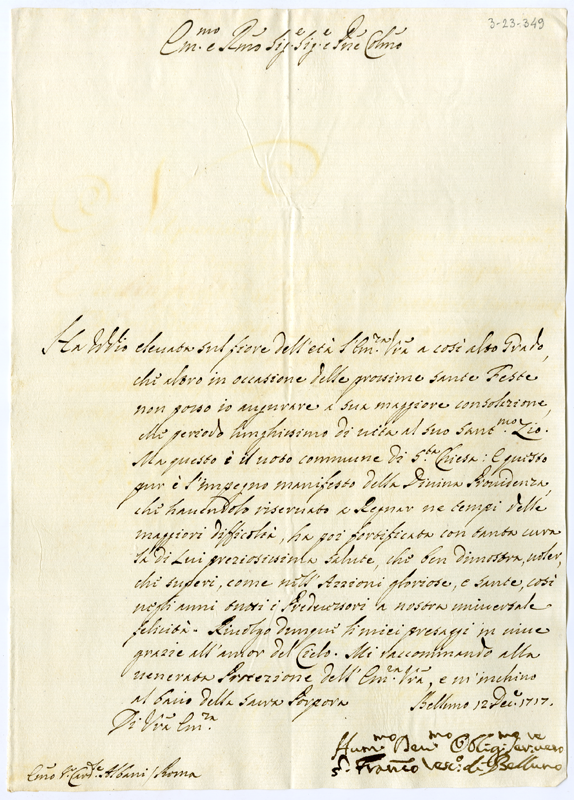 3-23-349
Em.mo e Rmo Sig.re Sig.re e Pne Colmo
Ha Iddio elevata sul fiore dell'età l'Em.za Vra a così alto Grado,
che altro in occasione delle prossime sante Feste
non posso io augurare a sua maggiore consolazione,
che periodo lunghissimo di vita al suo Sant.mo Zio.
Ma questo è il voto commune di S.ta Chiesa: E questo
pur è l'impegno manifesto della Divina Providenza,
che havendolo riservato a Regnar ne tempi delle
maggiori difficoltà, ha poi fortificata con tanta cura
la di Lui preziosissima salute, che ben dimostra, voler,
che superi, come nell'Azzioni gloriose, e sante, così
negli anni tutti i Predecessori a nostra universale
felicità. Rivolgo dunque li miei presaggi in vive
grazie all'autor del Cielo. Mi raccommando alla
venerata Protezione dell'Em.za Vra, e m'inchino
al bacio della Sacra Porpora Belluno 12 Dec.e 1717.
Di Vra Em.za
Hum.mo Dev.mo Oblig.mo Ser.re vero
Franco Vesc.o di Belluno
Emo S.r Card.le Albani / Roma